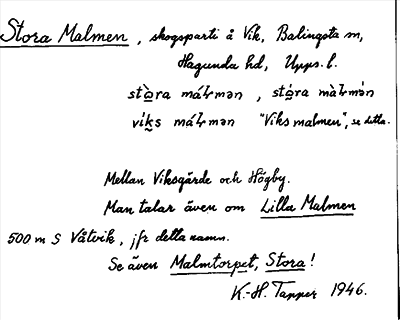 Stora Malmen, skogsparti å Vik, Balingsta sn,
Hagunda hd, Upps. l.
stòra málmən, stóra màlmə̀n
víks málmən "Viks malmen", se detta.
Mellan Viksgärde och Högby.
Man talar även om Lilla Malmen
500 m S Våtvik, jfr detta namn.
Se även Malmtorpet, Stora!
K.-H. Tapper 1946.